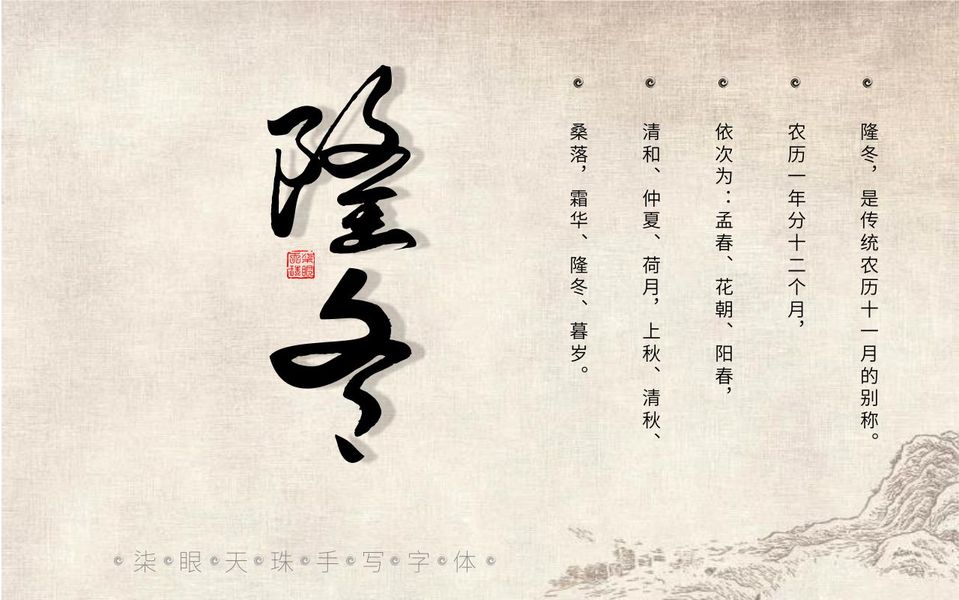 隆冬
隆冬，是传统农历十一月的别称。
农历一年分十二个月，
依次为：孟春、花朝、阳春，
清和、仲夏、荷月，上秋、清秋、
桑落，霜华、隆冬、暮岁。
柒眼天珠手写字体